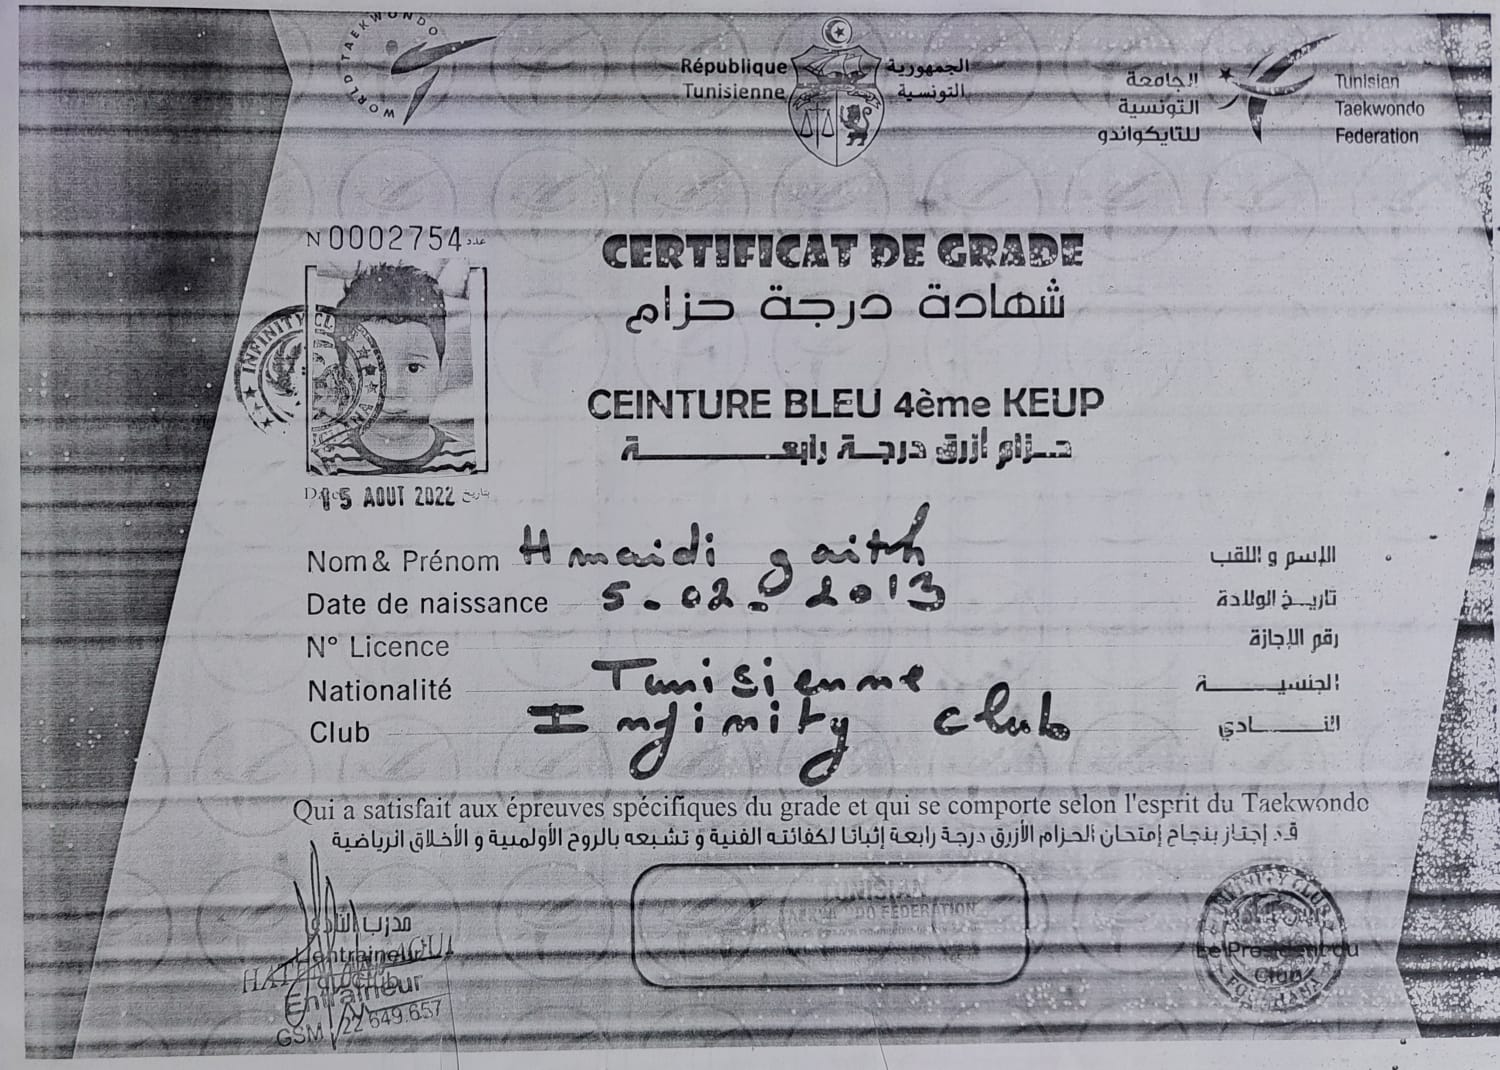 WORLD TAEKWONDO
République
Tunisienne
الجمهورية
التونسية
الجامعة
التونسية
للتايكواندو
Tunisian
Taekwondo
Federation
N 0002754 عدد
CERTIFICAT DE GRADE
شهادة درجة حزام
INFINITY CLUB
CEINTURE BLEU 4ème KEUP
حزام أزرق درجة رابعة
Date 15 AOUT 2022 بتاريخ
Nom & Prénom Hmaidi gaith الإسم و اللقب
Date de naissance 5.02.2013 تاريخ الولادة
N° Licence رقم الإجازة
Nationalité Tunisienne الجنسية
Club Infinity club النادي
Qui a satisfait aux épreuves spécifiques du grade et qui se comporte selon l'esprit du Taekwondo
قد إجتاز بنجاح إمتحان الحزام الأزرق درجة رابعة إثباتا لكفائته الفنية و تشبعه بالروح الأولمبية و الأخلاق الرياضية
مدرب النادي
L'entraineur
du club
Entraîneur
GSM 22 649.657
TUNISIAN
TAEKWONDO FEDERATION
INFINITY CLUB
Le President du
Club
FOUCHANA